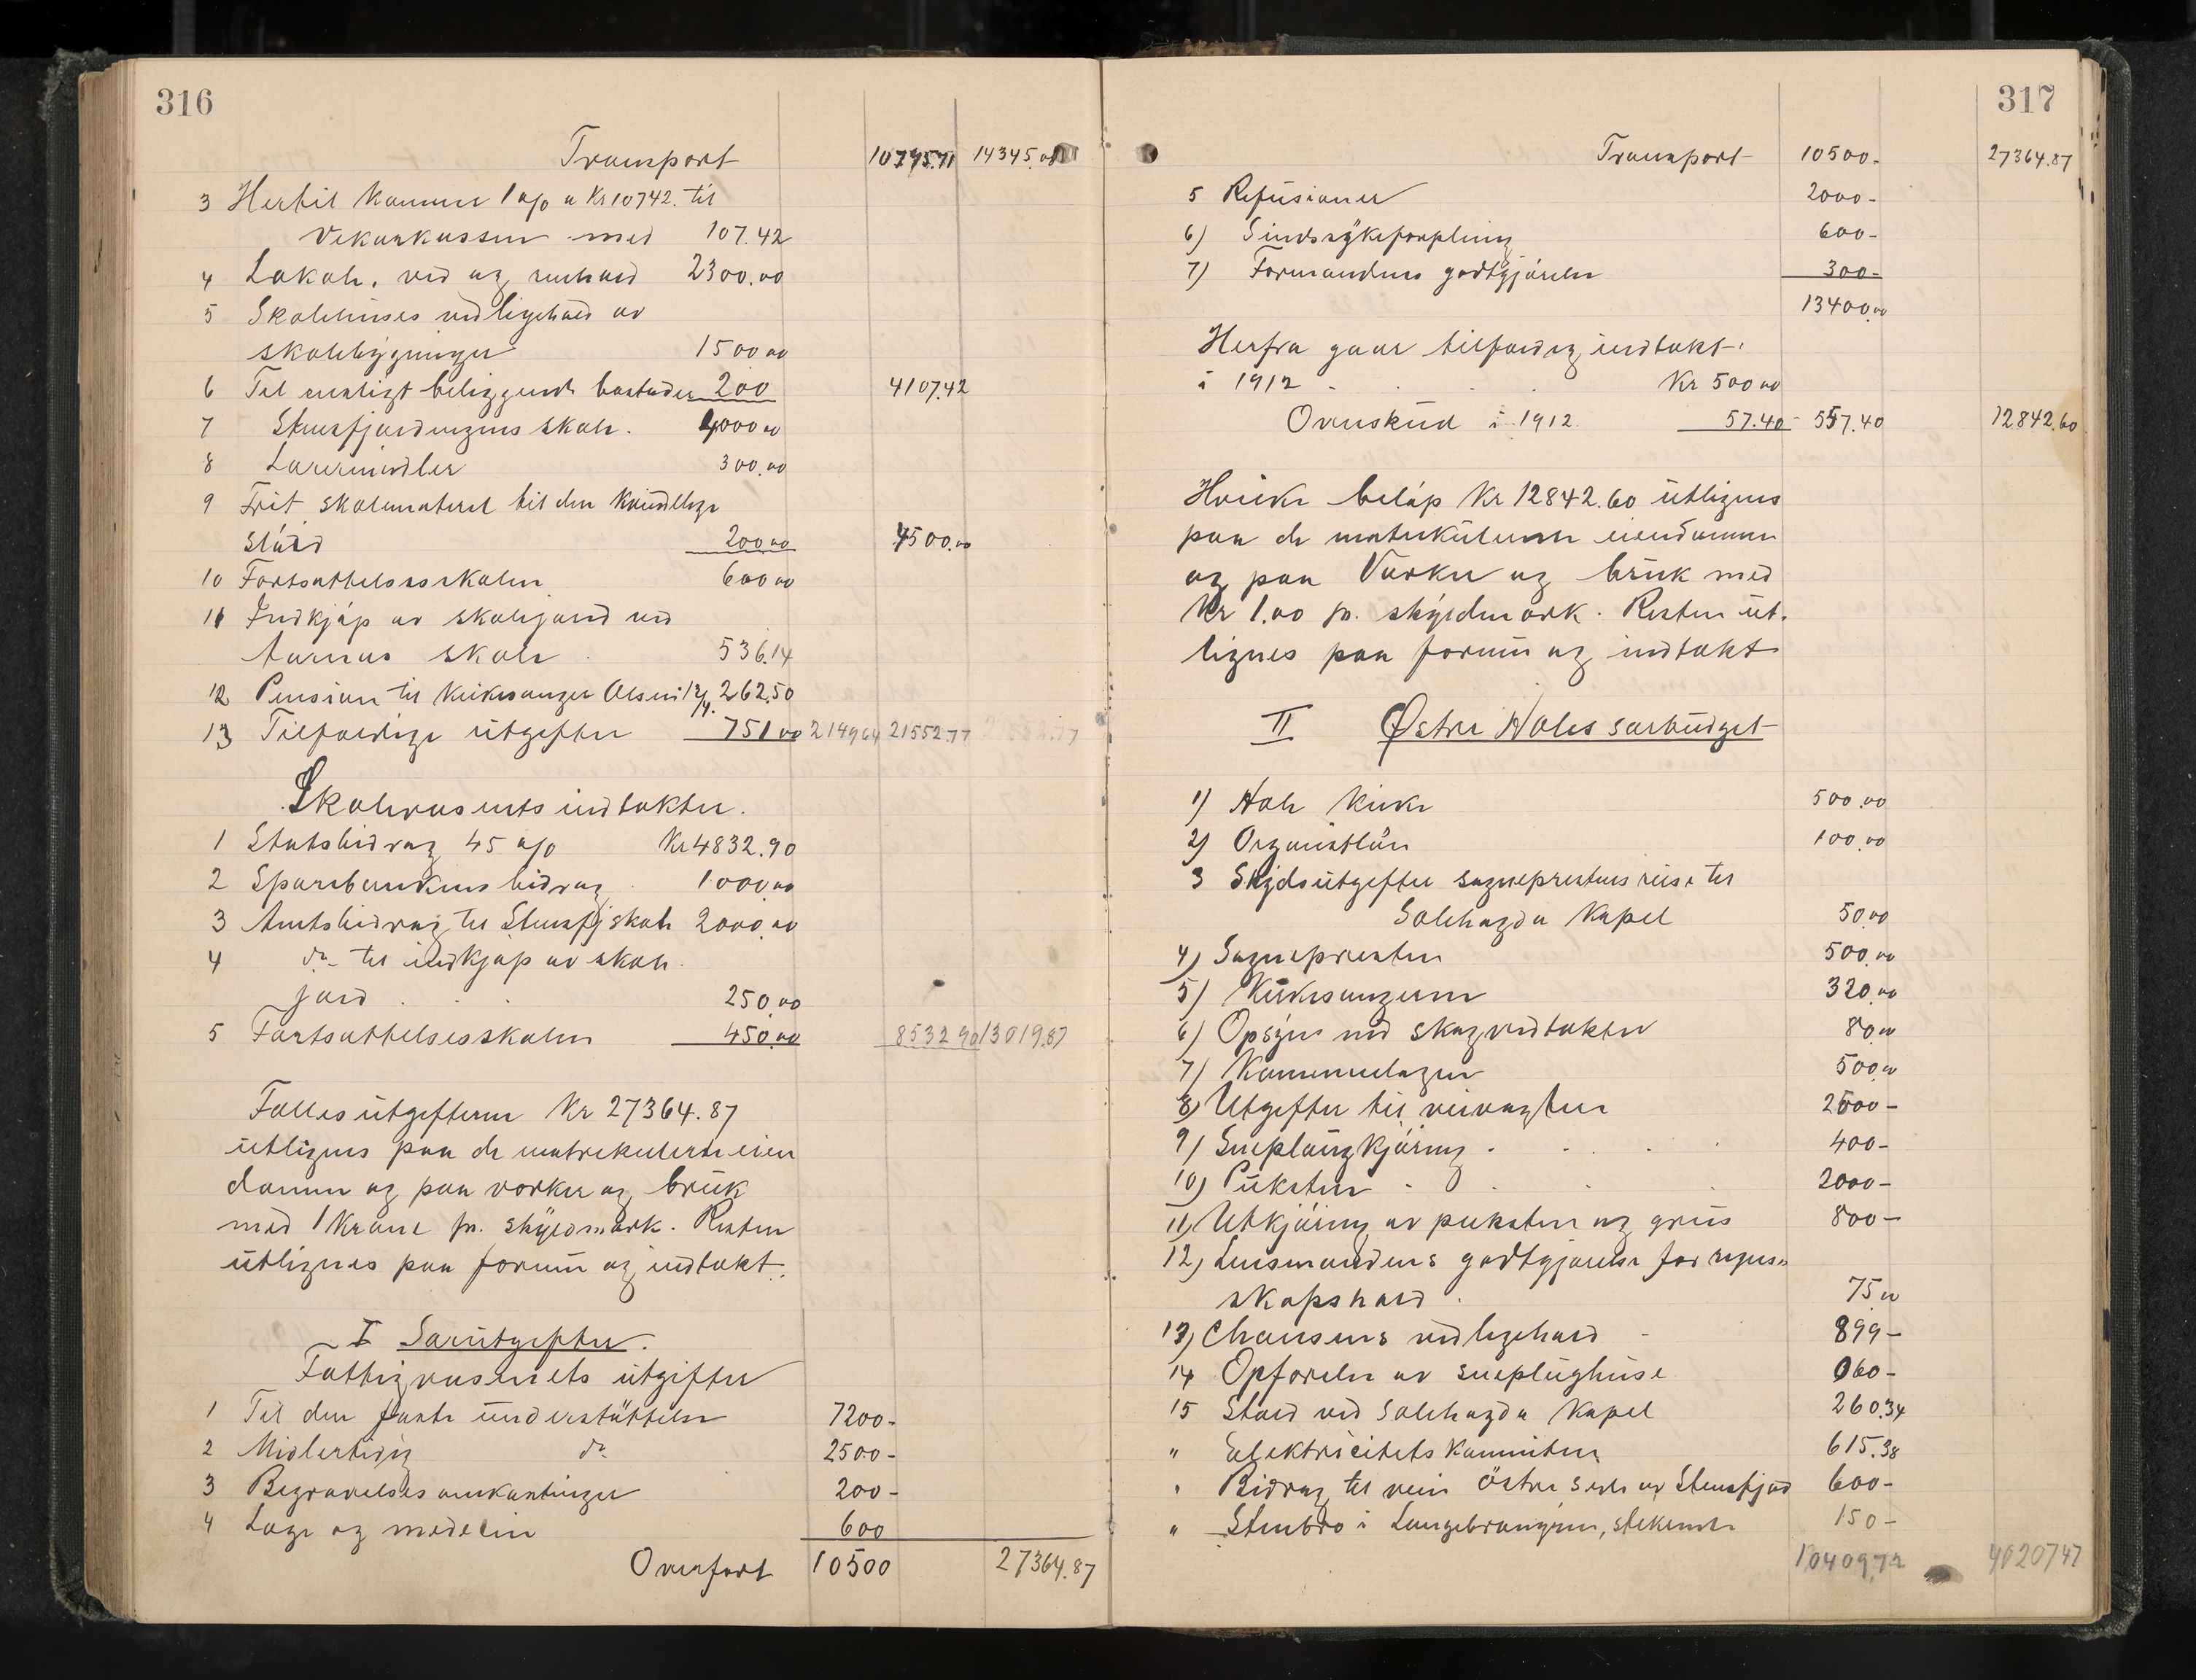 316
Transport 10795.71 14345.00
3 Hertil kommer 1 o/o a Kr 10742. til
Vikarkassen med 107.42
4 Lokale, ved og renhold 2300.00
5 Skolehuses vedligehold av
skolebygninger 1500.00
6 Til ensligt beliggende bosteder 200 4107.42
7 Stensfjordingens skole. 4000.00
8 Læremidler 300.00
9 Frit skolemateriel til den kvindelige
sløid 200.00 4500.00
10 Fortsættelsesskolen 600.00
11 Indkjøp av skolejord ved
Aarnæs skole 536.14
12 Pension til kirkesanger Olsen 262.50
13 Tilfældige utgifter 751.00 2149.64 21552.77
Skolevæsenets indtækter.
1 Statsbidrag 45 o/o Kr 4832.90
2 Sparebankens bidrag 1000.00
3 Amtsbidrag til Stensfj skole 2000.00
4 do til indkjøp av skole
jord . . . 250.00
5 Fortsættelsesskolen 450.00 8532.90 13019.87
Fællesutgifterne Kr 27364.87
utlignes paa de matrekulerte eien
domme og paa verker og bruk
med 1 Krone pr. skyldmark. Resten
utlignes paa formue og indtækt.
I Særutgifter.
Fattigvæsenets utgifter
1 Til den faste understøttelse 7200-
2 Midlertidig do 2500-
3 Begravelsesomkostninger 200-
4 Læge og medecin 600
Overført 10500 27364.87
317
Transport 10500- 27364.87
5 Refusioner 2000-
6) Sindssykeforpleining 600-
7) Formandens godtgjørelse 300-
13400.00
Herfra gaar tilfældig indtækt
i 1912 . . . Kr 500.00
Overskud i 1912 57.40 557.40 12842.60
Hvilke beløp Kr 12842.60 utlignes
paa de matrikulerte eiendomme
og paa Verker og bruk med
Kr 1.00 pr. skyldmark. Resten ut-
lignes paa formue og indtækt
II Østre Holes særbudget
1) Hole Kirke 500.00
2) Organistløn 100.00
3 Skydsutgifter sogneprestens reise til
Solehøgda Kapel 50.00
4) Sognepresten 500.00
5) Kirkesangeren 320.00
6) Opsyn med skogvedtækter 80.00
7) Kommunelagen 500.00
8) Utgifter til veivogter 2500-
9) Sneplougkjøring . . . . 400-
10) Puksten . . . . 2000-
11) Utkjøring av puksten og grus 800-
12) Lensmandens godtgjørelse for regns-
skapshold . 75.00
13) Chausens vedligehold - 899-
14 Opførelse av sneplughuse 060-
15 Stald ved Solehøgda Kapel 260.34
" Eelektricitetskommiteen 615.38
" Bidrag til vein østre side av Stensfjord 600-
" Stenbro i Langebrangen, stekende 150-
10409.72 40207.47